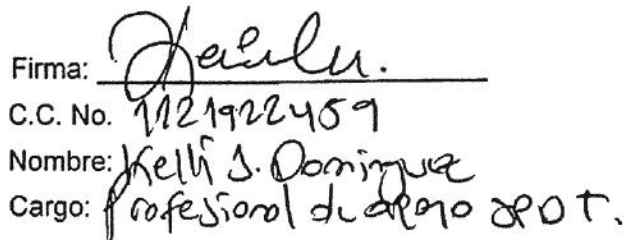 Firma:
C.C. No. 1121922459
Nombre: Kelli J. Dominguez
Cargo: Profesional de apoyo